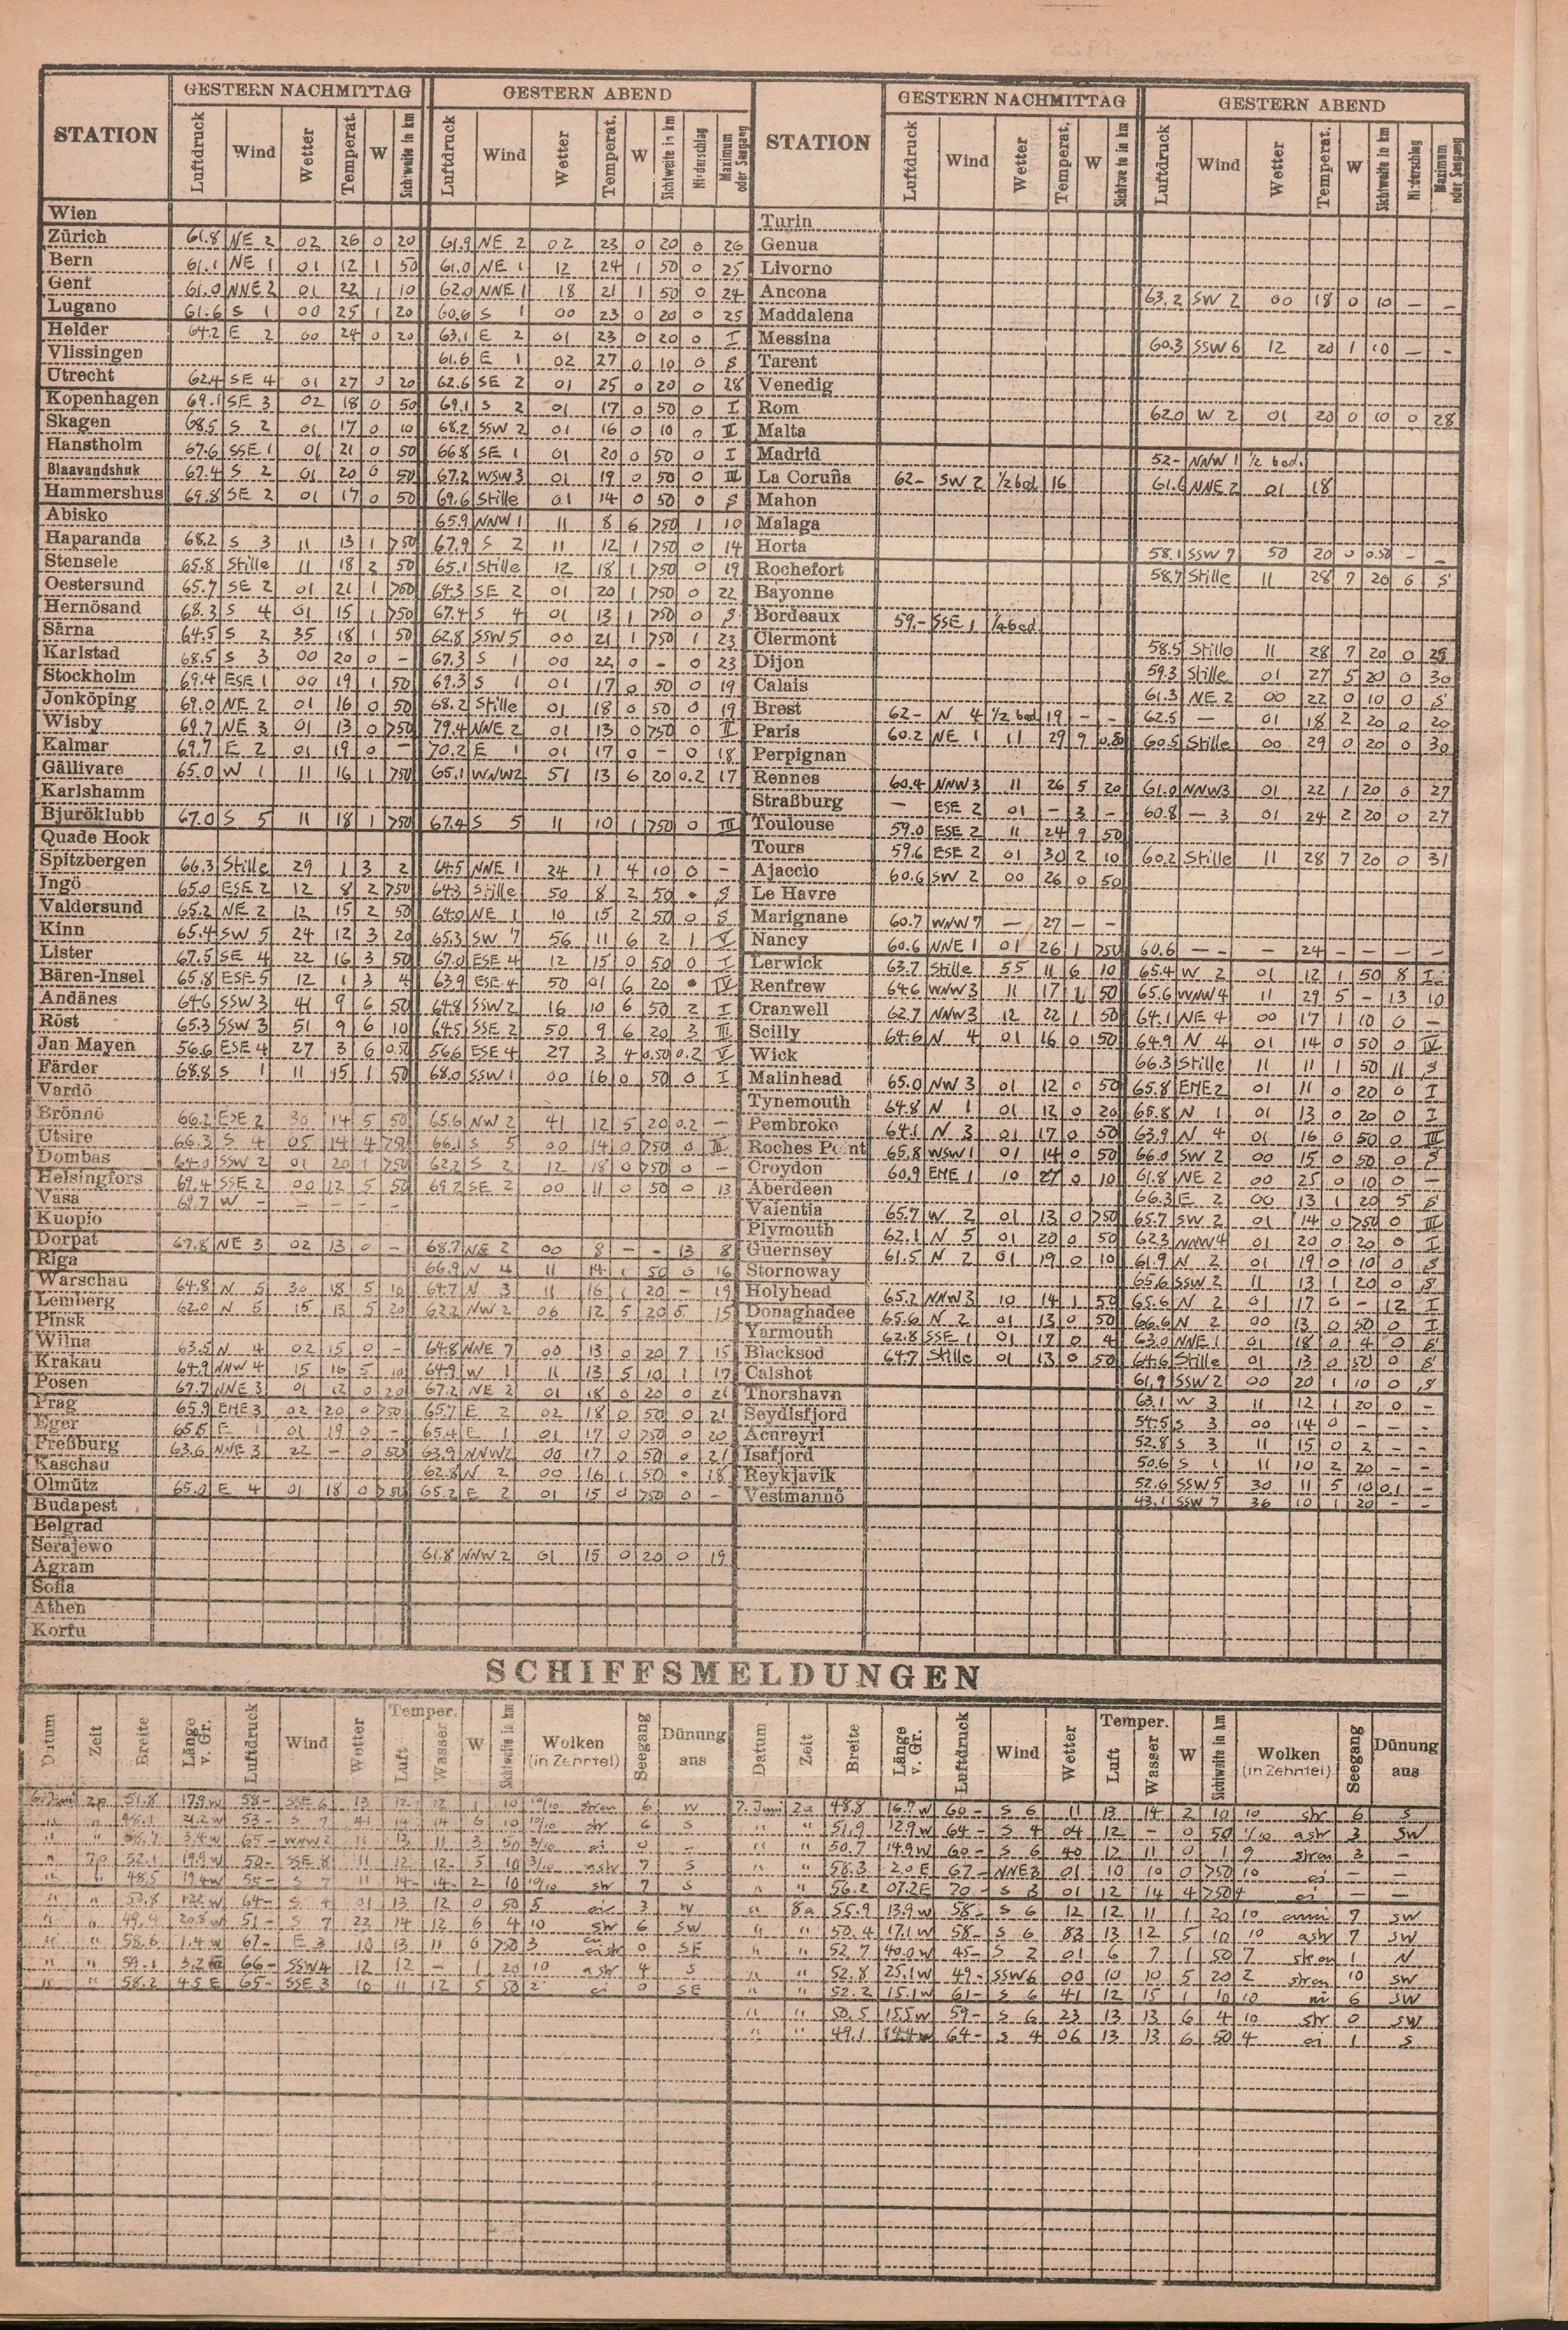 STATION GESTERN NACHMITTAG GESTERN ABEND STATION GESTERN NACHMITTAG GESTERN ABEND
Luftdruck Wind Wetter Temperat. W Sichtweite in km Luftdruck Wind Wetter Temperat. W Sichtweite in km Niederschlag Maximum oder Seegang Luftdruck Wind Wetter Temperat. W Sichtweite in km Luftdruck Wind Wetter Temperat. W Sichtweite in km Niederschlag Maximum oder Seegang
Wien Turin
Zürich 61.8 NE 2 02 26 0 20 61.9 NE 2 02 23 0 20 0 26 Genua
Bern 61.1 NE 1 01 12 1 50 61.0 NE 1 12 24 1 50 0 25 Livorno
Genf 61.0 NNE 2 01 22 1 10 62.0 NNE 1 18 21 1 50 0 24 Ancona 63.2 SW 2 00 18 0 10 — —
Lugano 61.6 S 1 00 25 1 20 60.6 S 1 00 23 0 20 0 25 Maddalena
Helder 64.2 E 2 00 24 0 20 63.1 E 2 01 23 0 20 0 I Messina 60.3 SSW 6 12 20 1 10 — -
Vlissingen 61.6 E 1 02 27 0 10 0 S Tarent
Utrecht 62.4 SE 4 01 27 0 20 62.6 SE 2 01 25 0 20 0 28 Venedig
Kopenhagen 69.1 SE 3 02 18 0 50 69.1 S 2 01 17 0 50 0 I Rom 62.0 W 2 01 20 0 10 0 28
Skagen 68.5 S 2 01 17 0 10 68.2 SSW 2 01 16 0 10 0 II Malta
Hanstholm 67.6 SSE 1 01 21 0 50 66.8 SE 1 01 20 0 50 0 I Madrid 52- NNW 1 1/2 bed.
Blaavandshuk 67.4 S 2 01 20 0 50 67.2 WSW 3 01 19 0 50 0 III La Coruña 62- SW 2 1/2 bed 16 61.6 NNE 2 01 18
Hammershus 69.8 SE 2 01 17 0 50 69.6 Stille 01 14 0 50 0 S Mahon
Abisko 65.9 NNW 1 11 8 6 >50 1 10 Malaga
Haparanda 68.2 S 3 11 13 1 >50 67.9 S 2 11 12 1 >50 0 14 Horta 58.1 SSW 7 50 20 0 0.50 - -
Stensele 65.8 Stille 11 18 2 50 65.1 Stille 12 18 1 >50 0 19 Rochefort 58.7 Stille 11 28 7 20 0 S
Oestersund 65.7 SE 2 01 21 1 >50 64.3 SE 2 01 20 1 >50 0 22 Bayonne
Hernösand 68.3 S 4 01 15 1 >50 67.4 S 4 01 13 1 >50 0 S Bordeaux 59.- SSE 1
Särna 64.5 S 2 35 18 1 50 62.8 SSW 5 00 21 1 >50 1 23 Clermont 58.5 Stille 11 28 7 20 0 29
Karlstad 68.5 S 3 00 20 0 — 67.3 S 1 00 22 0 - 0 23 Dijon 59.3 Stille 01 27 5 20 0 30
Stockholm 69.4 ESE 1 00 19 1 50 69.3 S 1 01 17 0 50 0 19 Calais 61.3 NE 2 00 22 0 10 0 S
Jonköping 69.0 NE 2 01 16 0 50 68.2 Stille 01 18 0 50 0 19 Brest 62- N 4 1/2 bed 19 - - 62.5 — 01 18 2 20 0 20
Wisby 69.7 NE 3 01 13 0 >50 79.4 NNE 2 01 13 0 >50 0 II Paris 60.2 NE 1 11 29 9 0.50 60.5 Stille 00 29 0 20 0 30
Kalmar 69.7 E 2 01 19 0 — 70.2 E 1 01 17 0 - 0 18 Perpignan
Gällivare 65.0 W 1 11 16 1 >50 65.1 WNW 2 51 13 6 20 0.2 17 Rennes 60.4 NNW 3 11 26 5 20 61.0 NNW 3 01 22 1 20 0 27
Karlshamm Straßburg — ESE 2 01 - 3 - 60.8 — 3 01 24 2 20 0 27
Bjuröklubb 67.0 S 5 11 18 1 >50 67.4 S 5 11 10 1 >50 0 III Toulouse 59.0 ESE 2 11 24 9 50
Quade Hook Tours 59.6 ESE 2 01 30 2 10 60.2 Stille 11 28 7 20 0 31
Spitzbergen 66.3 Stille 29 1 3 2 64.5 NNE 1 24 1 4 10 0 — Ajaccio 60.6 SW 2 00 26 0 50
Ingö 65.0 ESE 2 12 8 2 >50 64.3 Stille 50 8 2 50 • S Le Havre
Valdersund 65.2 NE 2 12 15 2 50 64.0 NE 1 10 15 2 50 0 S Marignane 60.7 WNW 7 — 27 - -
Kinn 65.4 SW 5 24 12 3 20 65.3 SW 7 56 11 6 2 1 V Nancy 60.6 NNE 1 01 26 1 >50 60.6 — - — 24 - — - -
Lister 67.5 SE 4 22 16 3 50 67.0 ESE 4 12 15 0 50 0 I Lerwick 63.7 Stille 55 11 6 10 65.4 W 2 01 12 1 50 8 I
Bären-Insel 65.8 ESE 5 12 1 3 4 63.9 ESE 4 50 01 6 20 • IV Renfrew 64.6 WNW 3 11 17 1 50 65.6 WNW 4 11 29 5 - 13 10
Andänes 64.6 SSW 3 41 9 6 50 64.8 SSW 2 16 10 6 50 2 I Cranwell 62.7 NNW 3 12 22 1 50 64.1 NE 4 00 17 1 10 0 —
Röst 65.3 SSW 3 51 9 6 10 64.5 SSE 2 50 9 6 20 3 III Scilly 64.6 N 4 01 16 0 50 64.9 N 4 01 14 0 50 0 IV
Jan Mayen 56.6 ESE 4 27 3 6 0.50 56.6 ESE 4 27 3 4 0.50 0.2 V Wick 66.3 Stille 11 11 1 50 11 S
Färder 68.8 S 1 11 15 1 50 68.0 SSW 1 00 16 0 50 0 I Malinhead 65.0 NW 3 01 12 0 50 65.8 ENE 2 01 11 0 20 0 I
Vardö Tynemouth 64.8 N 1 01 12 0 20 65.8 N 1 01 13 0 20 0 I
Brönnö 66.2 ESE 2 30 14 5 50 65.6 NW 2 41 12 5 20 0.2 — Pembroke 64.1 N 3 01 17 0 50 63.9 N 4 01 16 0 50 0 III
Utsire 66.3 S 4 05 14 4 >50 66.1 S 5 00 14 0 >50 0 III Roches Point 65.8 WSW 1 01 14 0 50 66.0 SW 2 00 15 0 50 0 S
Dombas 64.0 SSW 2 01 20 1 >50 62.2 S 2 12 18 0 >50 0 — Croydon 60.9 ENE 1 10 27 0 10 61.8 NE 2 00 25 0 10 0 —
Helsingfors 69.4 SSE 2 00 12 5 50 69.2 SE 2 00 11 0 50 0 13 Aberdeen 66.3 E 2 00 13 1 20 5 S
Vasa 69.7 W - - - - - Valentia 65.7 W 2 01 13 0 >50 65.7 SW 2 01 14 0 >50 0 III
Kuopio Plymouth 62.1 N 5 01 20 0 50 62.3 NNW 4 01 20 0 20 0 I
Dorpat 67.8 NE 3 02 13 0 - 68.7 NE 2 00 8 - - 13 8 Guernsey 61.5 N 2 01 19 0 10 61.9 N 2 01 19 0 10 0 S
Riga 66.9 N 4 11 14 1 50 0 16 Stornoway 65.6 SSW 2 11 13 1 20 0 S
Warschau 64.8 N 5 30 18 5 10 64.7 N 3 11 16 1 20 - 19 Holyhead 65.2 NNW 3 10 14 1 50 65.6 N 2 01 17 0 - 12 I
Lemberg 62.0 N 5 15 13 5 20 62.2 NW 2 06 12 5 20 5 15 Donaghadee 65.6 N 2 01 13 0 50 66.6 N 2 00 13 0 50 0 I
Pinsk Yarmouth 62.8 SSE 1 01 17 0 4 63.0 NNE 1 01 18 0 4 0 S
Wilna 63.5 N 4 02 15 0 - 64.8 NNE 7 00 13 0 20 7 15 Blacksod 64.7 Stille 01 13 0 50 64.6 Stille 01 13 0 50 0 S
Krakau 64.9 NNW 4 15 16 5 10 64.9 W 1 11 13 5 10 1 17 Calshot 61.9 SSW 2 00 20 1 10 0 S
Posen 67.7 NNE 3 01 12 0 20 67.2 NE 2 01 18 0 20 0 21 Thorshavn 63.1 W 3 11 12 1 20 0 -
Prag 65.9 ENE 3 02 20 0 >50 65.7 E 2 02 18 0 50 0 21 Seydisfjord 54.5 S 3 00 14 0 - - -
Eger 65.5 E 1 01 19 0 - 65.4 E 1 01 17 0 >50 0 20 Acureyri 52.8 S 3 11 15 0 2 - -
Preßburg 63.6 NNE 3 22 - 0 50 63.9 NNW 2 00 17 0 50 0 21 Isafjord 50.6 S 1 11 10 2 20 - -
Kaschau 62.8 N 2 00 16 1 50 • 18 Reykjavik 52.6 SSW 5 30 11 5 10 0.1 -
Olmütz 65.0 E 4 01 18 0 >50 65.2 E 2 01 15 0 >50 0 — Vestmannö 43.1 SSW 7 36 10 1 20 - -
Budapest
Belgrad
Serajewo 61.8 NNW 2 01 15 0 20 0 19
Agram
Sofia
Athen
Korfu
SCHIFFSMELDUNGEN
Datum Zeit Breite Länge v. Gr. Luftdruck Wind Wetter Temper. Luft Wasser W Sichtweite in km Wolken (in Zehntel) Seegang Dünung aus Datum Zeit Breite Länge v. Gr. Luftdruck Wind Wetter Temper. Luft Wasser W Sichtweite in km Wolken (in Zehntel) Seegang Dünung aus
6. Juni 2p 51.8 17.9 W 58- SSE 6 13 12 12 1 10 10/10 strcu 6 W 7. Juni 2a 48.8 16.7 W 60- S 6 11 13 14 2 10 10 str 6 S
" " 48.1 21.2 W 53- S 7 41 14 14 6 10 10/10 str 6 S " " 51.9 12.9 W 64- S 4 04 12 - 0 50 1/10 astr 3 SW
" " 3.4 W 65- WNW 2 11 13 11 3 50 3/10 ci 0 - " " 50.7 14.9 W 60- S 6 40 12 11 0 1 9 strcu 3 —
" 7p 52.1 19.9 W 50- SSE 8 11 12 12 5 10 3/10 astr 7 S " " 58.3 2.0 E 67- NNE 3 01 10 10 0 >50 10 ci — —
" " 48.5 19.4 W 55- S 7 11 14 14 2 10 10/10 str 7 S " " 56.2 07.2 E 70- S 3 01 12 14 4 >50 4 ci — —
" " 50.8 12.2 W 64- S 4 01 13 12 0 50 5 3 W " 8a 55.9 13.9 W 58- S 6 12 12 11 1 20 10 7 SW
" " 49.4 20.8 W 51- S 7 22 14 12 6 4 10 str 6 SW " " 50.4 17.1 W 58- S 6 83 13 12 5 10 10 astr 7 SW
" " 58.6 1.4 W 67- E 3 10 13 11 0 >50 3 0 SE " " 52.7 40.0 W 45- S 2 01 6 7 1 50 7 strcu 1 N
" " 59.1 3.2 66- SSW 4 12 12 - 1 20 10 astr 4 S " " 52.8 25.1 W 49- SSW 6 00 10 10 5 20 2 strcu 10 SW
" " 58.2 4.5 E 65- SSE 3 10 11 12 5 50 2 ci 0 SE " " 52.2 15.1 W 61- S 6 41 12 15 1 10 10 ni 6 SW
" " 50.5 15.5 W 59- S 6 23 13 13 6 4 10 str 0 SW
" " 49.1 64- S 4 06 13 13 6 50 4 ci 1 S